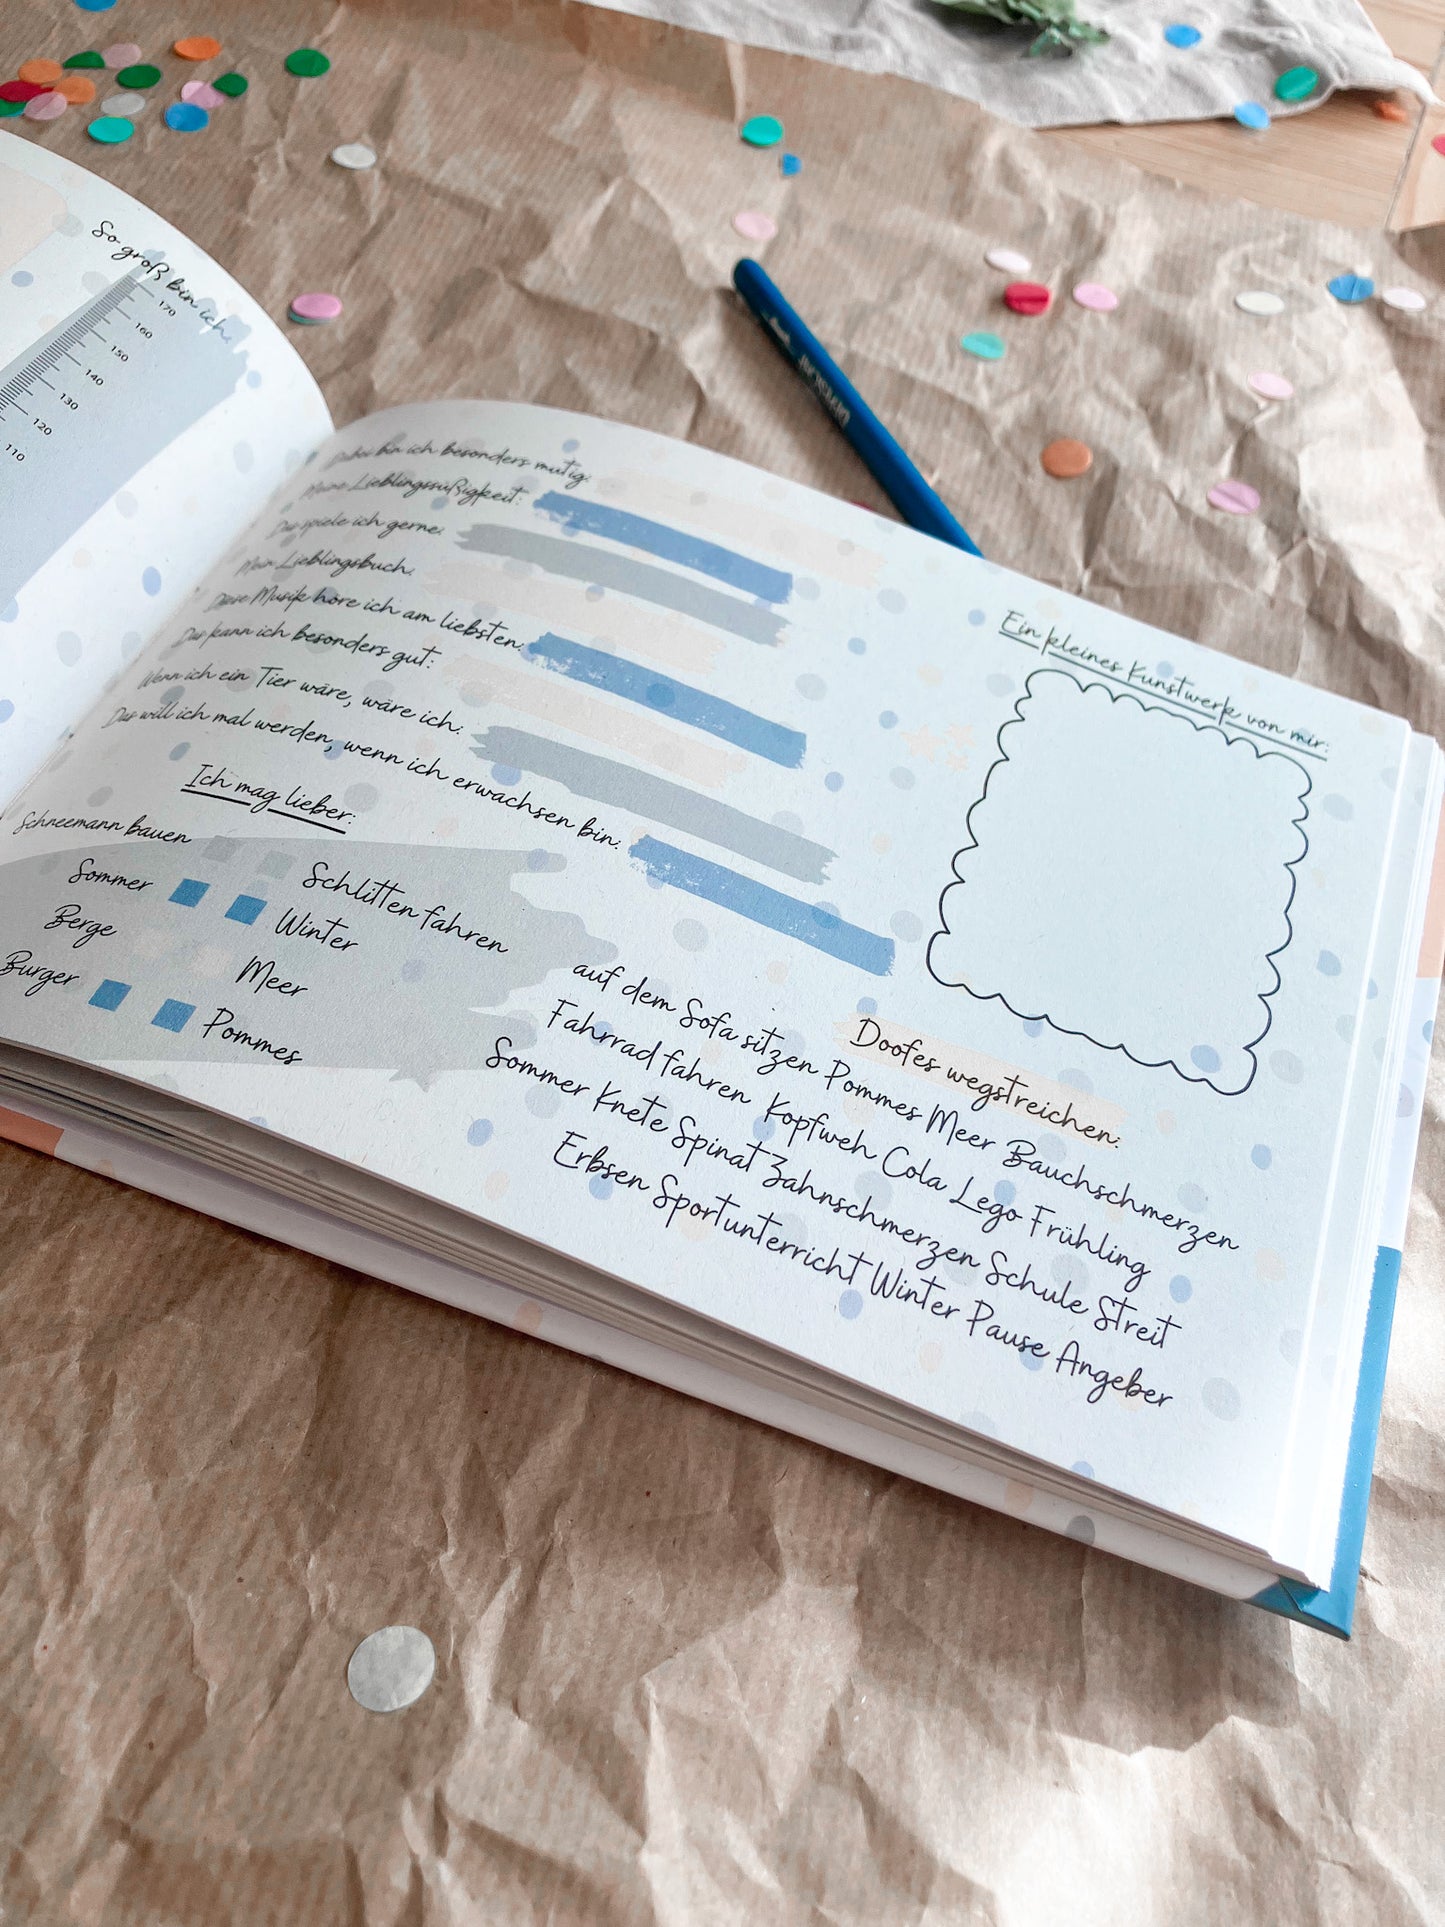 So groß bin ich:
170
160
150
140
130
120
110
Dabei bin ich besonders mutig:
Meine Lieblingssüßigkeit:
Das spiele ich gerne:
Mein Lieblingsbuch:
Diese Musik höre ich am liebsten:
Das kann ich besonders gut:
Wenn ich ein Tier wäre, wäre ich:
Das will ich mal werden, wenn ich erwachsen bin:
Ich mag lieber:
Schneemann bauen Schlitten fahren
Sommer Winter
Berge Meer
Burger Pommes
Ein kleines Kunstwerk von mir:
Doofes wegstreichen:
auf dem Sofa sitzen Pommes Meer Bauchschmerzen
Fahrrad fahren Kopfweh Cola Lego Frühling
Sommer Knete Spinat Zahnschmerzen Schule Streit
Erbsen Sportunterricht Winter Pause Angeber